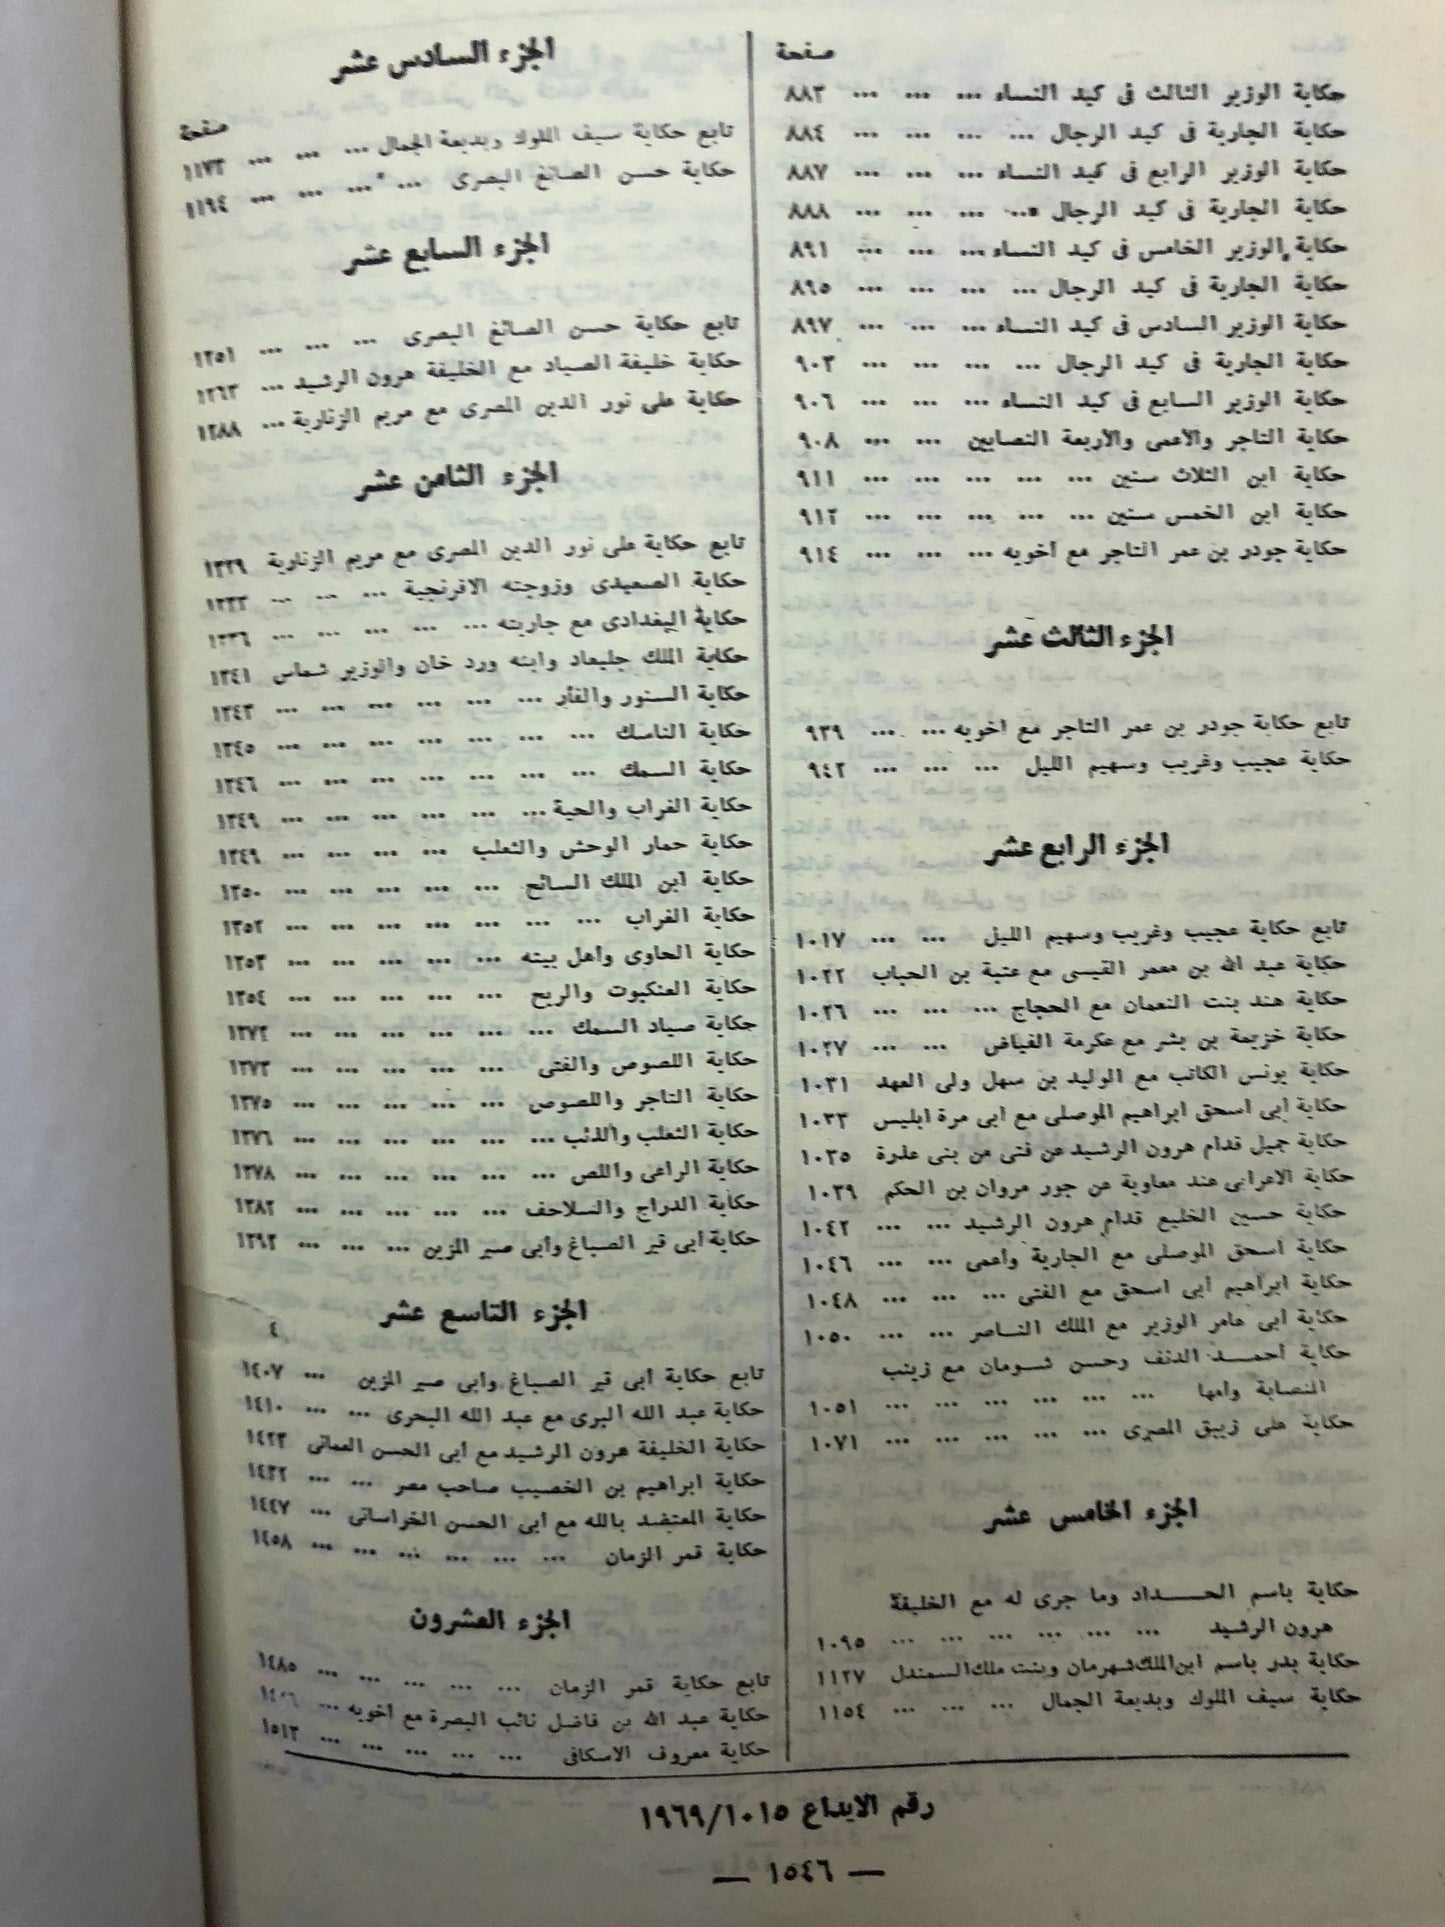 صفحة
حكاية الوزير الثالث فى كيد النساء ... ... ... ٨٨٣
حكاية الجارية فى كيد الرجال ... ... ... ... ٨٨٤
حكاية الوزير الرابع فى كيد النساء ... ... ... ٨٨٧
حكاية الجارية فى كيد الرجال ... ... ... ... ٨٨٨
حكاية الوزير الخامس فى كيد النساء ... ... ... ٨٩١
حكاية الجارية فى كيد الرجال ... ... ... ... ٨٩٥
حكاية الوزير السادس فى كيد النساء ... ... ... ٨٩٧
حكاية الجارية فى كيد الرجال ... ... ... ... ٩٠٣
حكاية الوزير السابع فى كيد النساء ... ... ... ٩٠٦
حكاية التاجر والأعمى والأربعة النصابين ... ... ٩٠٨
حكاية ابن الثلاث سنين ... ... ... ... ... ٩١١
حكاية ابن الخمس سنين ... ... ... ... ... ٩١٢
حكاية جودر بن عمر التاجر مع أخويه ... ... ... ٩١٤
الجزء الثالث عشر
تابع حكاية جودر بن عمر التاجر مع أخويه ... ... ٩٣٩
حكاية عجيب وغريب وسهيم الليل ... ... ... ٩٤٢
الجزء الرابع عشر
تابع حكاية عجيب وغريب وسهيم الليل ... ... ١٠١٧
حكاية عبد الله بن معمر القيسى مع عتبة بن الحباب ١٠٢٢
حكاية هند بنت النعمان مع الحجاج ... ... ... ١٠٢٦
حكاية خزيمة بن بشر مع عكرمة الفياض ... ... ١٠٢٧
حكاية يونس الكاتب مع الوليد بن سهل ولى العهد ١٠٣١
حكاية أبى اسحق ابراهيم الموصلى مع ابى مرة ابليس ١٠٣٣
حكاية جميل قدام هرون الرشيد عن فتى من بنى عذرة ١٠٣٥
حكاية الاعرابى عند معاوية عن جور مروان بن الحكم ١٠٣٩
حكاية حسين الخليع قدام هرون الرشيد ... ... ١٠٤٢
حكاية اسحق الموصلى مع الجارية وأعمى ... ... ١٠٤٦
حكاية ابراهيم أبى اسحق مع الفتى ... ... ... ١٠٤٨
حكاية أبى عامر الوزير مع الملك الناصر ... ... ١٠٥٠
حكاية أحمد الدنف وحسن شومان مع زينب
النصابة وأمها ... ... ... ... ... ... ١٠٥١
حكاية على زيبق المصرى ... ... ... ... ... ١٠٧١
الجزء الخامس عشر
حكاية باسم الحداد وما جرى له مع الخليفة
هرون الرشيد ... ... ... ... ... ... ١٠٩٥
حكاية بدر باسم ابن الملك شهرمان وبنت ملك السمندل ١١٢٧
حكاية سيف الملوك وبديعة الجمال ... ... ... ١١٥٤
الجزء السادس عشر
صفحة
تابع حكاية سيف الملوك وبديعة الجمال ... ... ... ١١٧٣
حكاية حسن الصائغ البصرى ... ... ... ... ١١٩٤
الجزء السابع عشر
تابع حكاية حسن الصائغ البصرى ... ... ... ١٢٥١
حكاية خليفة الصياد مع الخليفة هرون الرشيد ... ١٢٦٣
حكاية على نور الدين المصرى مع مريم الزنارية ... ١٢٨٨
الجزء الثامن عشر
تابع حكاية على نور الدين المصرى مع مريم الزنارية ١٣٢٩
حكاية الصعيدى وزوجته الافرنجية ... ... ... ١٣٣٣
حكاية البغدادى مع جاريته ... ... ... ... ... ١٣٣٦
حكاية الملك جليعاد وابنه ورد خان والوزير شماس ١٣٤١
حكاية السنور والفأر ... ... ... ... ... ... ١٣٤٣
حكاية الناسك ... ... ... ... ... ... ... ١٣٤٥
حكاية السمك ... ... ... ... ... ... ... ١٣٤٦
حكاية الغراب والحية ... ... ... ... ... ... ١٣٤٩
حكاية حمار الوحش والثعلب ... ... ... ... ١٣٤٩
حكاية ابن الملك السائح ... ... ... ... ... ١٣٥٠
حكاية الغراب ... ... ... ... ... ... ... ١٣٥٢
حكاية الحاوى وأهل بيته ... ... ... ... ... ١٣٥٣
حكاية العنكبوت والريح ... ... ... ... ... ١٣٥٤
حكاية صياد السمك ... ... ... ... ... ... ١٣٧٢
حكاية اللصوص والفتى ... ... ... ... ... ١٣٧٣
حكاية التاجر واللصوص ... ... ... ... ... ١٣٧٥
حكاية الثعلب والذئب ... ... ... ... ... ... ١٣٧٦
حكاية الراعى واللص ... ... ... ... ... ... ١٣٧٨
حكاية الدراج والسلاحف ... ... ... ... ... ١٣٨٢
حكاية أبى قير الصباغ وأبى صير المزين ... ... ... ١٣٩٢
الجزء التاسع عشر
٤
تابع حكاية أبى قير الصباغ وأبى صير المزين ... ١٤٠٧
حكاية عبد الله البرى مع عبد الله البحرى ... ... ١٤١٠
حكاية الخليفة هرون الرشيد مع أبى الحسن العمانى ١٤٢٣
حكاية ابراهيم بن الخصيب صاحب مصر ... ... ١٤٣٢
حكاية المعتضد بالله مع أبى الحسن الخراسانى ... ١٤٤٧
حكاية قمر الزمان ... ... ... ... ... ... ١٤٥٨
الجزء العشرون
تابع حكاية قمر الزمان ... ... ... ... ... ١٤٨٥
حكاية عبد الله بن فاضل نائب البصرة مع أخويه ...
حكاية معروف الاسكافى ... ... ... ... ... ١٥١٣
رقم الايداع ١٩٦٩/١٠١٥
— ١٥٤٦ —